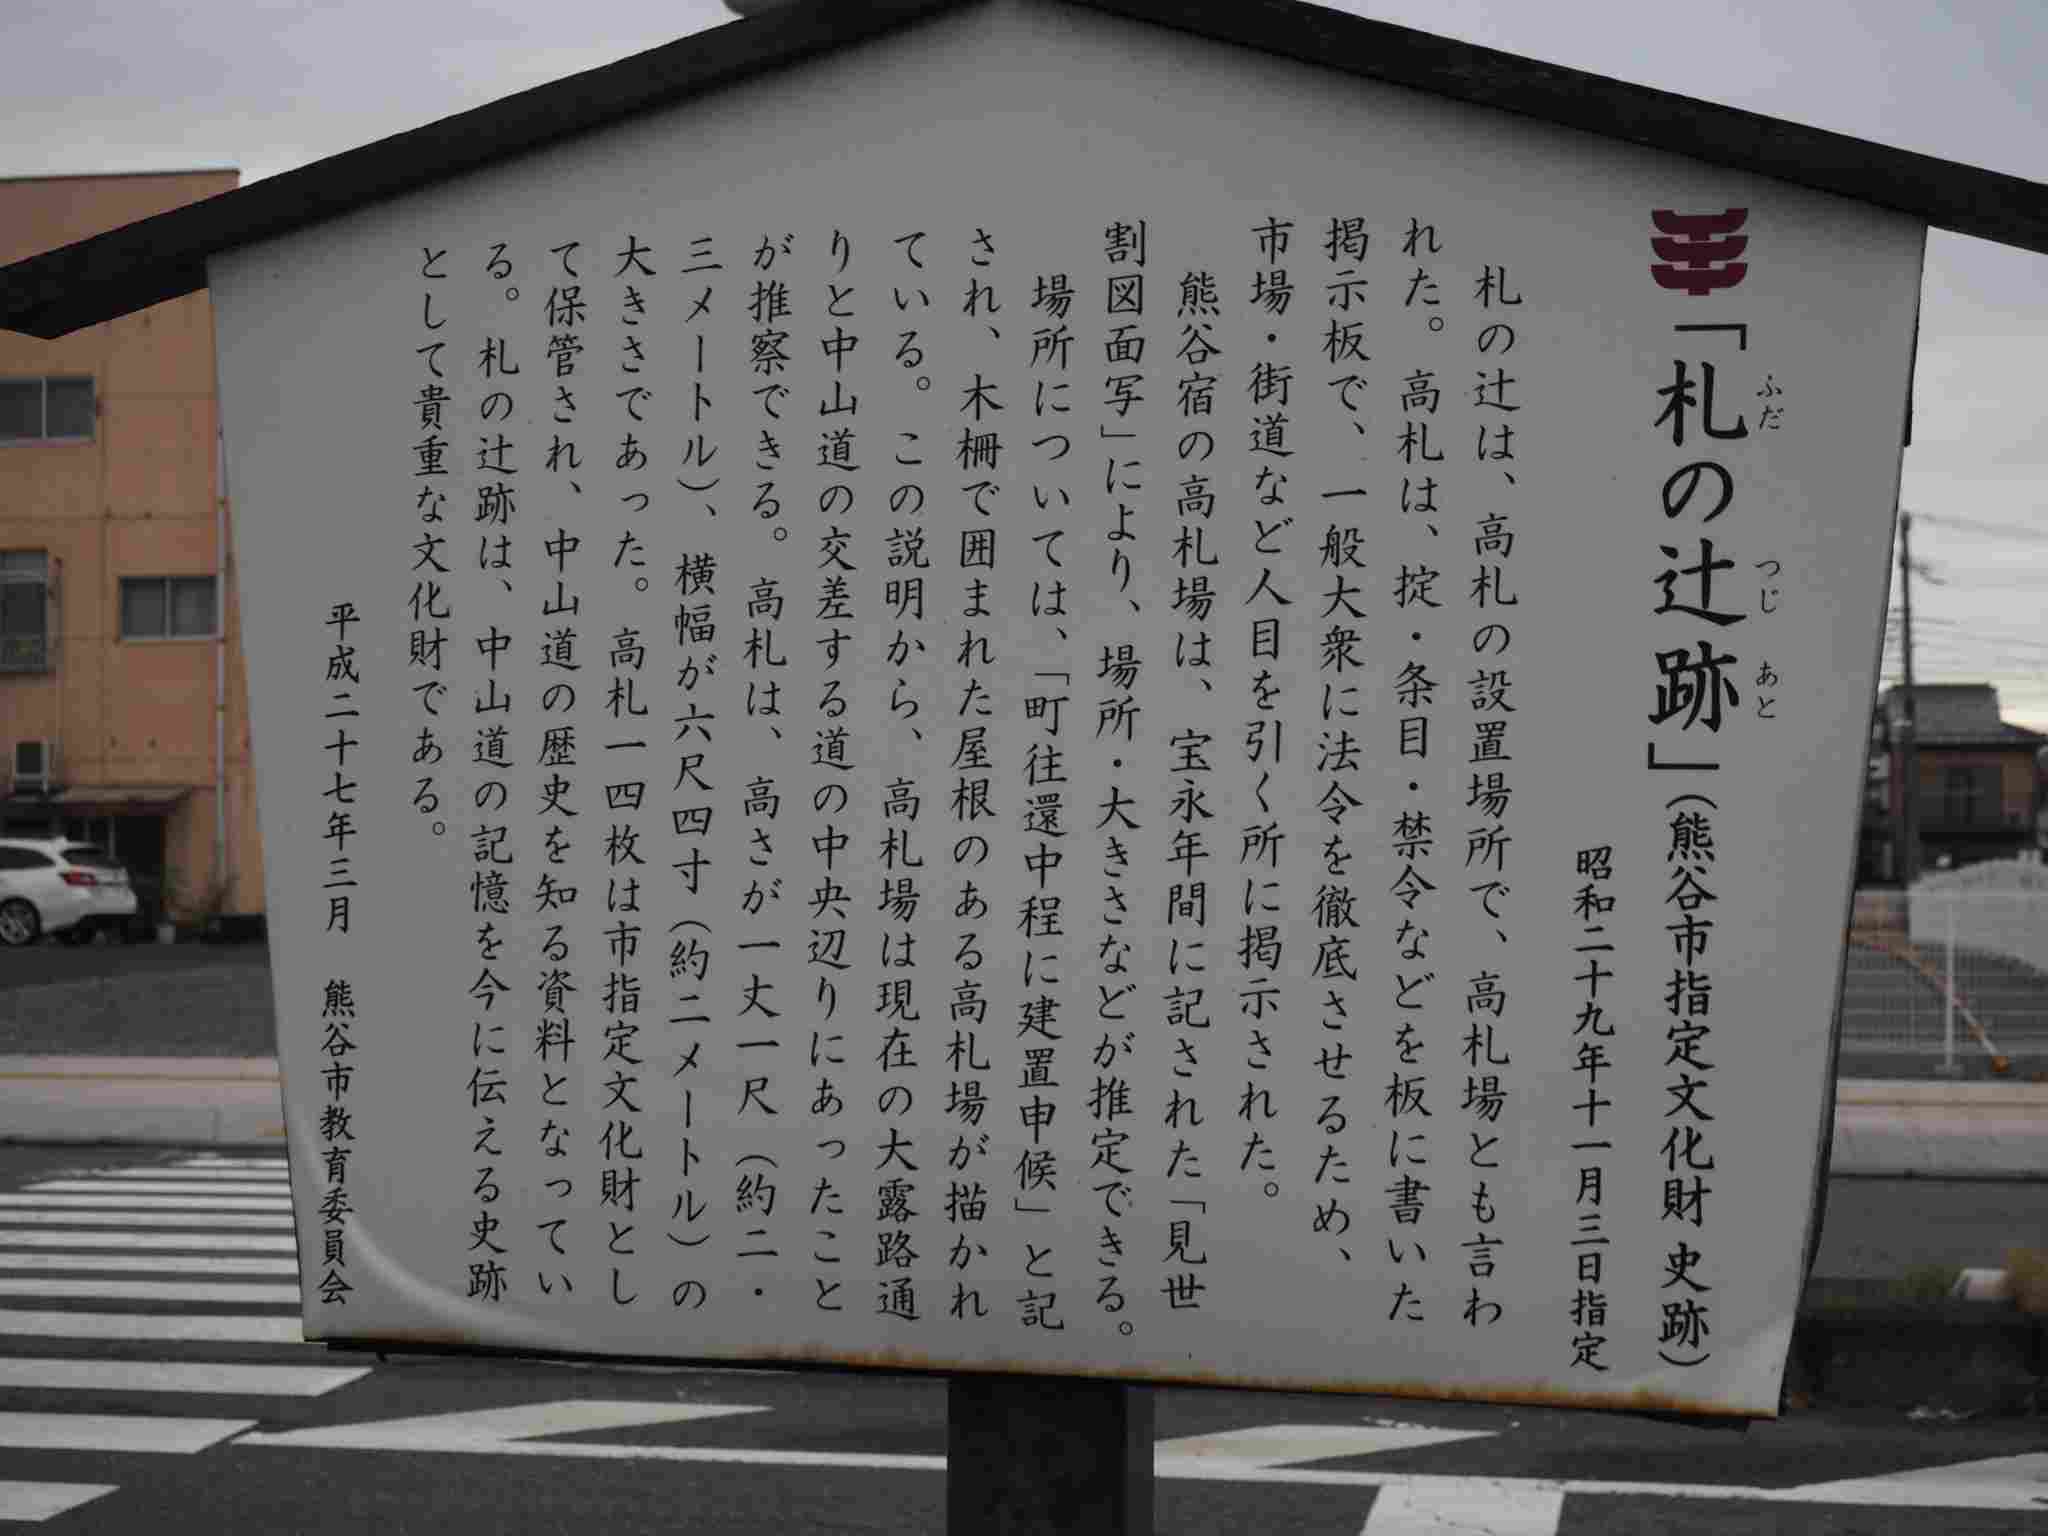 「札の辻跡」(熊谷市指定文化財 史跡)
ふだ つじ あと
昭和二十九年十一月三日指定
札の辻は、高札の設置場所で、高札場とも言わ
れた。高札は、掟・条目・禁令などを板に書いた
掲示板で、一般大衆に法令を徹底させるため、
市場・街道など人目を引く所に掲示された。
熊谷宿の高札場は、宝永年間に記された「見世
割図面写」により、場所・大きさなどが推定できる。
場所については、「町往還中程に建置申候」と記
され、木柵で囲まれた屋根のある高札場が描かれ
ている。この説明から、高札場は現在の大露路通
りと中山道の交差する道の中央辺りにあったこと
が推察できる。高札は、高さが一丈一尺(約二・
三メートル)、横幅が六尺四寸(約二メートル)の
大きさであった。高札一四枚は市指定文化財とし
て保管され、中山道の歴史を知る資料となってい
る。札の辻跡は、中山道の記憶を今に伝える史跡
として貴重な文化財である。
平成二十七年三月 熊谷市教育委員会